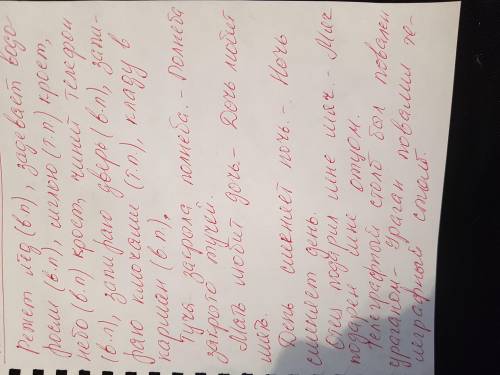 Режет лёд (в.п), задевает водо
росли (в.п), иглою (т.п) кроет,
небо (в.п) кроет, чинит телефон
(в.п), запираю дверь (в.п), запи-
раю ключами (т.п.), кладу в
карман (в.п),
Туча закрыла полнеба. - Полнеба
закрыто тучей.
Мать любит дочь. - Дочь любит
мать.
День сменяет ночь. - Ночь
сменяет день.
Отец подарил мне мяч. - Мяч
подарен мне отцом.
Телеграфный столб был повален
ураганом - Ураган повалил те-
леграфный столб.